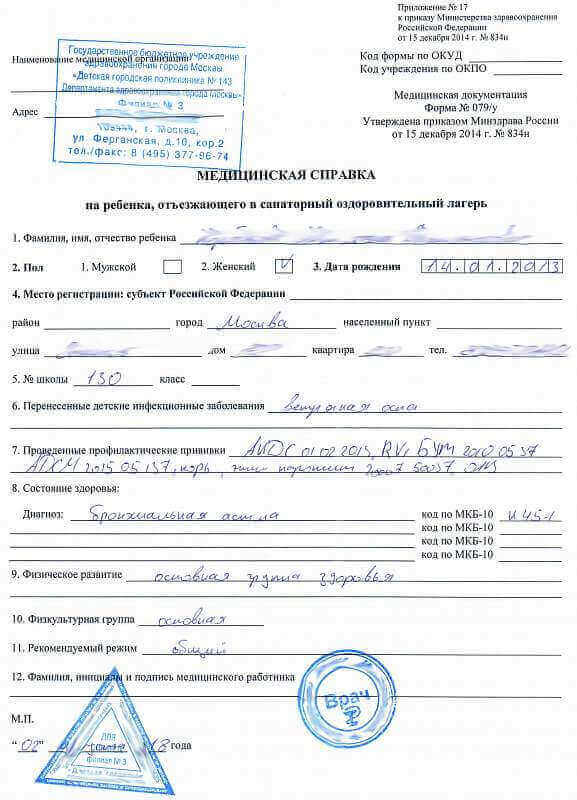 Приложение № 17
к приказу Министерства здравоохранения
Российской Федерации
от 15 декабря 2014 г. № 834н
Наименование медицинской организации
Государственное бюджетное учреждение
здравоохранения города Москвы
«Детская городская поликлиника № 143
Департамента здравоохранения города Москвы»
Филиал № 3
г. Москва,
ул Ферганская, д.10, кор.2
тел./факс: 8 (495) 377-96-74
Адрес
Код формы по ОКУД
Код учреждения по ОКПО
Медицинская документация
Форма № 079/у
Утверждена приказом Минздрава России
от 15 декабря 2014 г. № 834н
МЕДИЦИНСКАЯ СПРАВКА
на ребенка, отъезжающего в санаторный оздоровительный лагерь
1. Фамилия, имя, отчество ребенка
2. Пол 1. Мужской 2. Женский V 3. Дата рождения 14.01.2013
4. Место регистрации: субъект Российской Федерации
район город Москва населенный пункт
улица дом квартира тел.
5. № школы 130 класс
6. Перенесенные детские инфекционные заболевания ветряная оспа
7. Проведенные профилактические прививки АКДС 01 02 2013, RV1
АДСМ 2015 05 137, корь,
8. Состояние здоровья:
Диагноз: бронхиальная астма код по МКБ-10
код по МКБ-10
код по МКБ-10
код по МКБ-10
9. Физическое развитие основная группа здоровья
10. Физкультурная группа основная
11. Рекомендуемый режим общий
12. Фамилия, инициалы и подпись медицинского работника
Врач
М.П.
для
филиал № 3
"02" 18 года